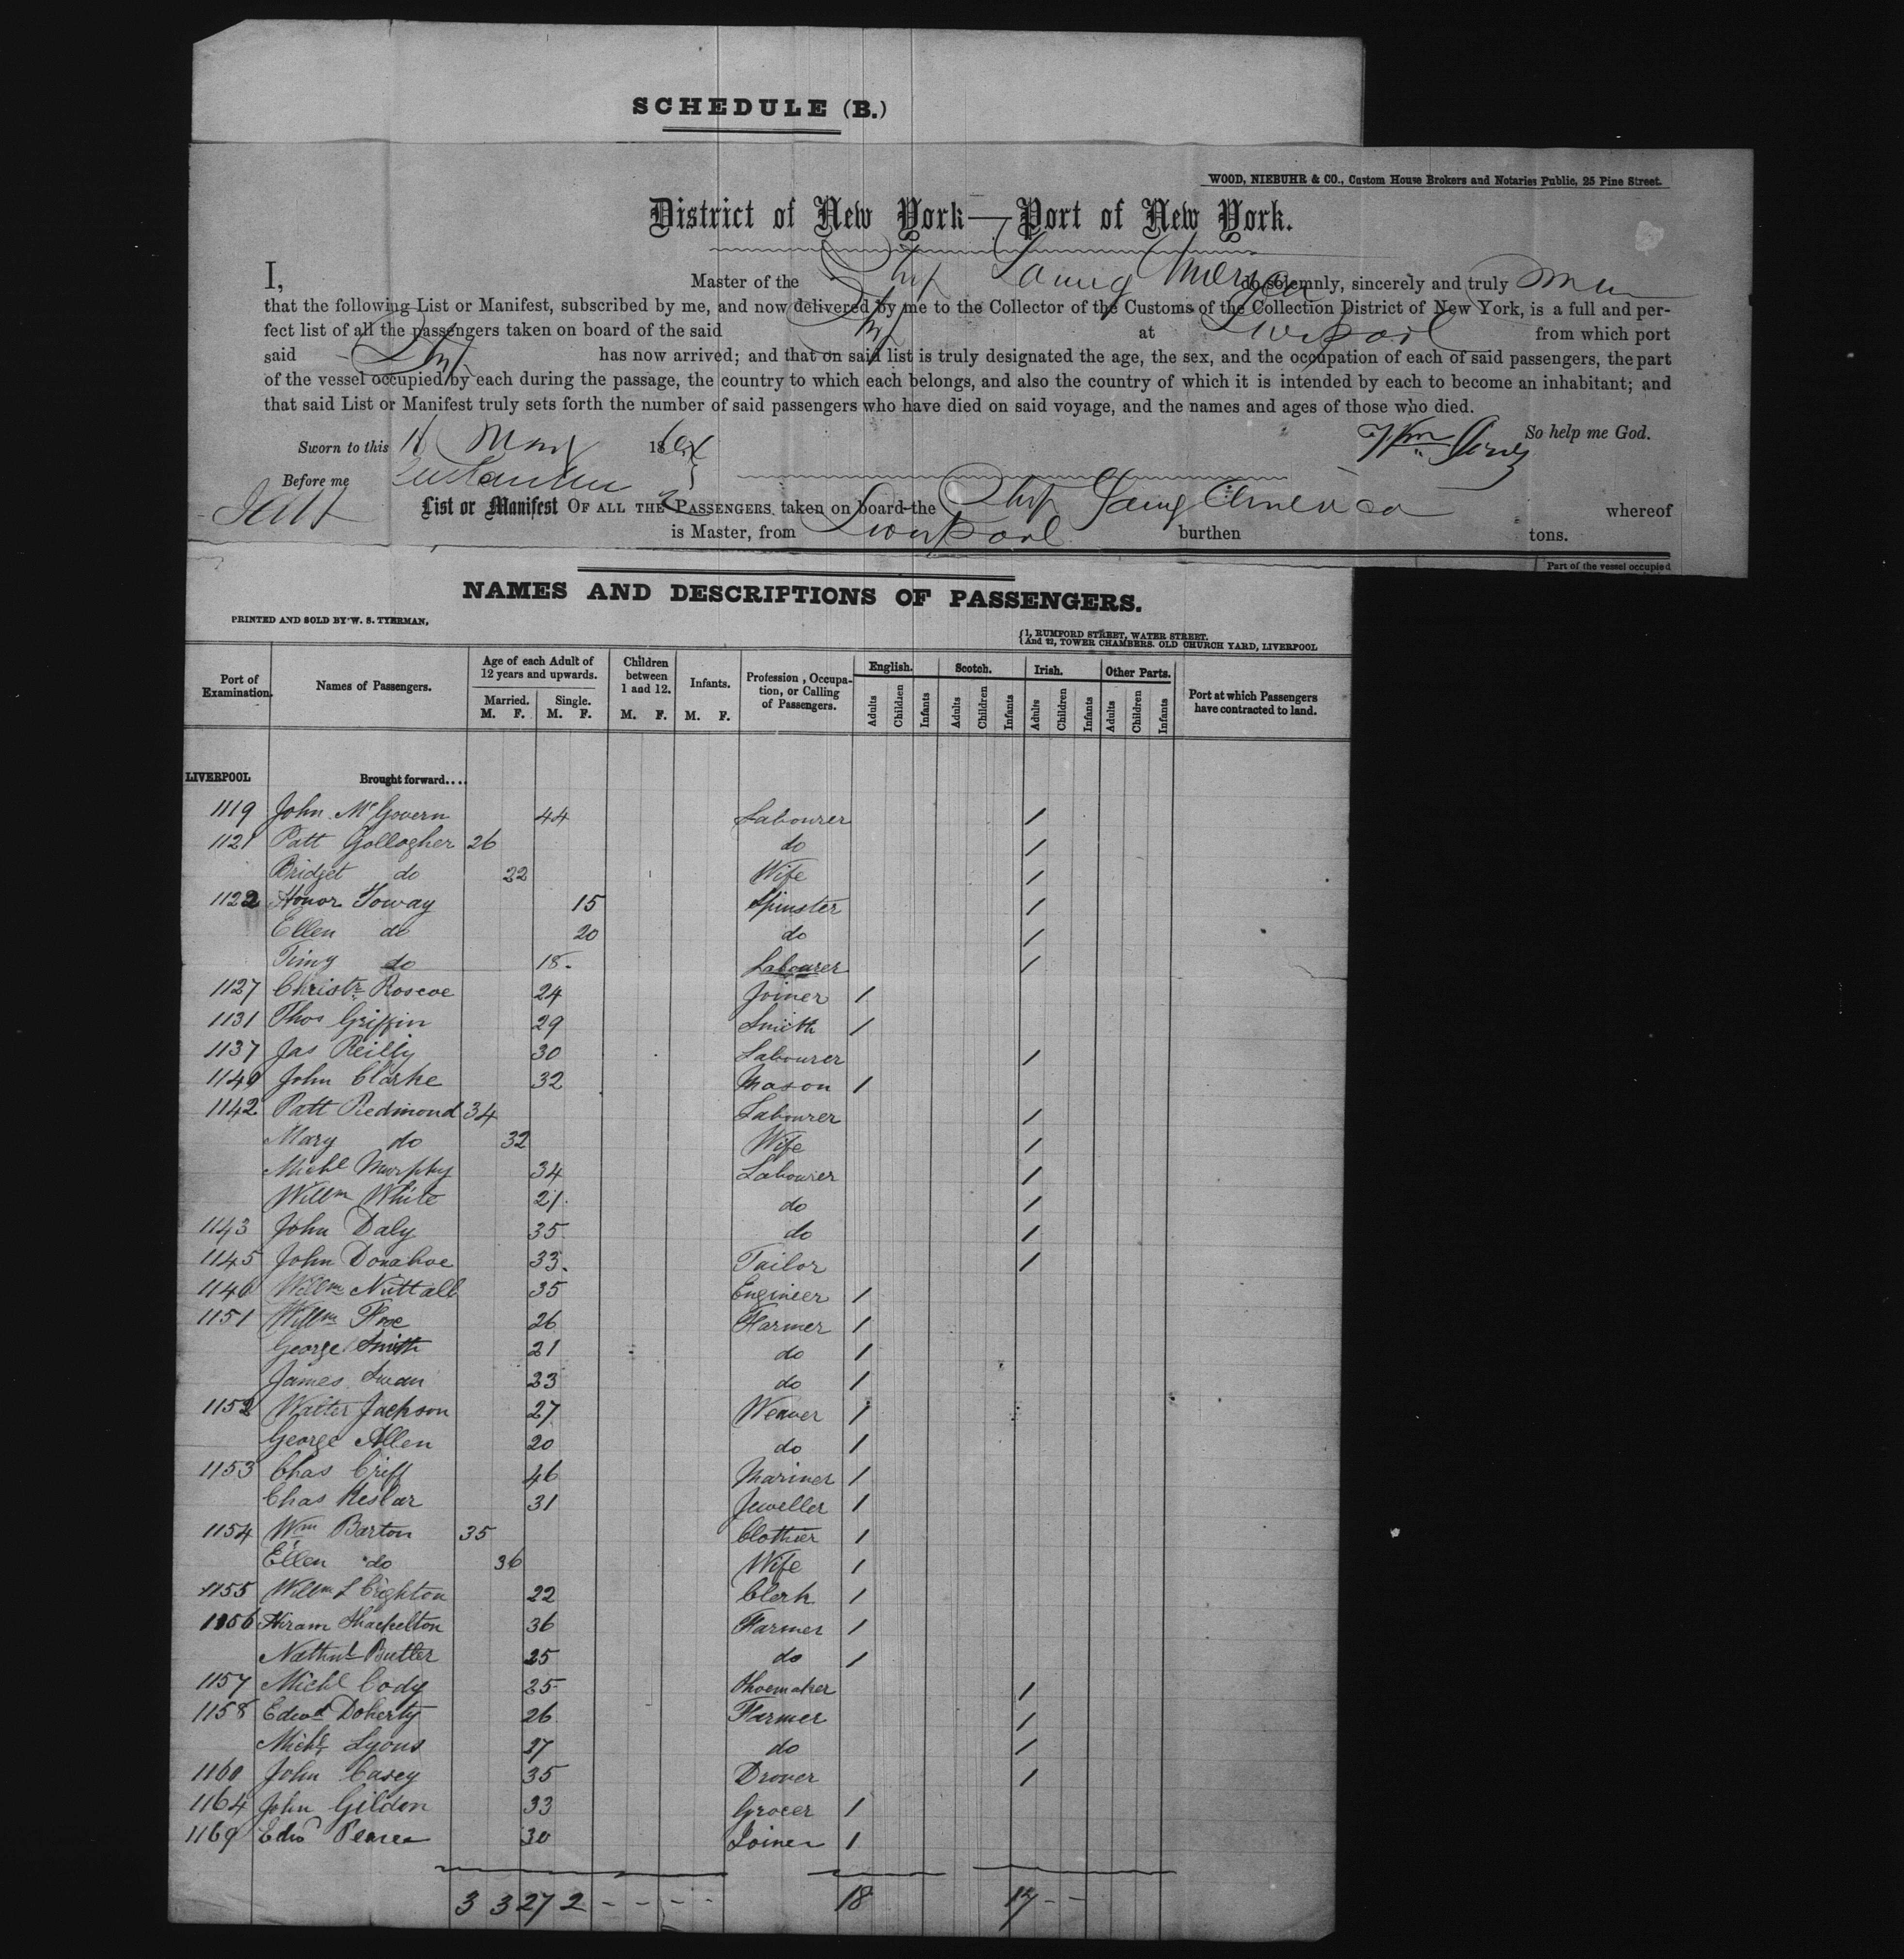 SCHEDULE (B.)
WOOD, NIEBUHR & CO., Custom House Brokers and Notaries Public, 25 Pine Street.
District of New York—Port of New York.
I, Master of the Ship Young America do solemnly, sincerely and truly
that the following List or Manifest, subscribed by me, and now delivered by me to the Collector of the Customs of the Collection District of New York, is a full and per-
fect list of all the passengers taken on board of the said Ship at Liverpool from which port
said Ship has now arrived; and that on said list is truly designated the age, the sex, and the occupation of each of said passengers, the part
of the vessel occupied by each during the passage, the country to which each belongs, and also the country of which it is intended by each to become an inhabitant; and
that said List or Manifest truly sets forth the number of said passengers who have died on said voyage, and the names and ages of those who died.
So help me God.
Sworn to this May 186
Before me
List or Manifest OF ALL THE PASSENGERS taken on board the Ship Young America whereof
is Master, from Liverpool burthen tons.
Part of the vessel occupied
NAMES AND DESCRIPTIONS OF PASSENGERS.
PRINTED AND SOLD BY W. S. TYERMAN,
{1, RUMFORD STREET, WATER STREET.
{And 22, TOWER CHAMBERS. OLD CHURCH YARD, LIVERPOOL
Port of Examination. Names of Passengers. Age of each Adult of 12 years and upwards. Children between 1 and 12. Infants. Profession, Occupation, or Calling of Passengers. English. Scotch. Irish. Other Parts. Port at which Passengers have contracted to land.
Married. Single.
M. F. M. F. M. F. M. F. Adults Children Infants Adults Children Infants Adults Children Infants Adults Children Infants
LIVERPOOL Brought forward....
1119 John McGovern 44 Labourer 1
1121 Patt Gollogher 26 do 1
Bridget do 22 Wife 1
1122 Honor Toway 15 Spinster 1
Ellen do 20 do 1
Timy do 18 Labourer 1
1127 Christr Roscoe 24 Joiner 1
1131 Thos Griffin 29 Smith 1
1137 Jas Reilly 30 Labourer 1
1140 John Clarke 32 Mason 1
1142 Patt Redmond 34 Labourer 1
Mary do 32 Wife 1
Michl Murphy 34 Labourer 1
Willm White 21 do 1
1143 John Daly 35 do 1
1145 John Donahoe 33 Tailor 1
1146 Willm Nuttall 35 Engineer 1
1151 Willm 26 Farmer 1
George Smith 21 do 1
James Swan 23 do 1
1152 Walter Jackson 27 Weaver 1
George Allen 20 do 1
1153 Chas Criff 46 Mariner 1
Chas Keslar 31 Jeweller 1
1154 Wm Barton 35 Clothier 1
Ellen do 36 Wife 1
1155 Willm L Crighton 22 Clerk 1
1156 Hiram Shackelton 36 Farmer 1
Nathnl Butler 25 do 1
1157 Michl Cody 25 Shoemaker 1
1158 Edwd Doherty 26 Farmer 1
Michl Lyons 27 do 1
1160 John Casey 35 Drover 1
1164 John Gildon 33 Grocer 1
1169 Edwd Pearce 30 Joiner 1
3 3 27 2 - - - - 18 17 - -